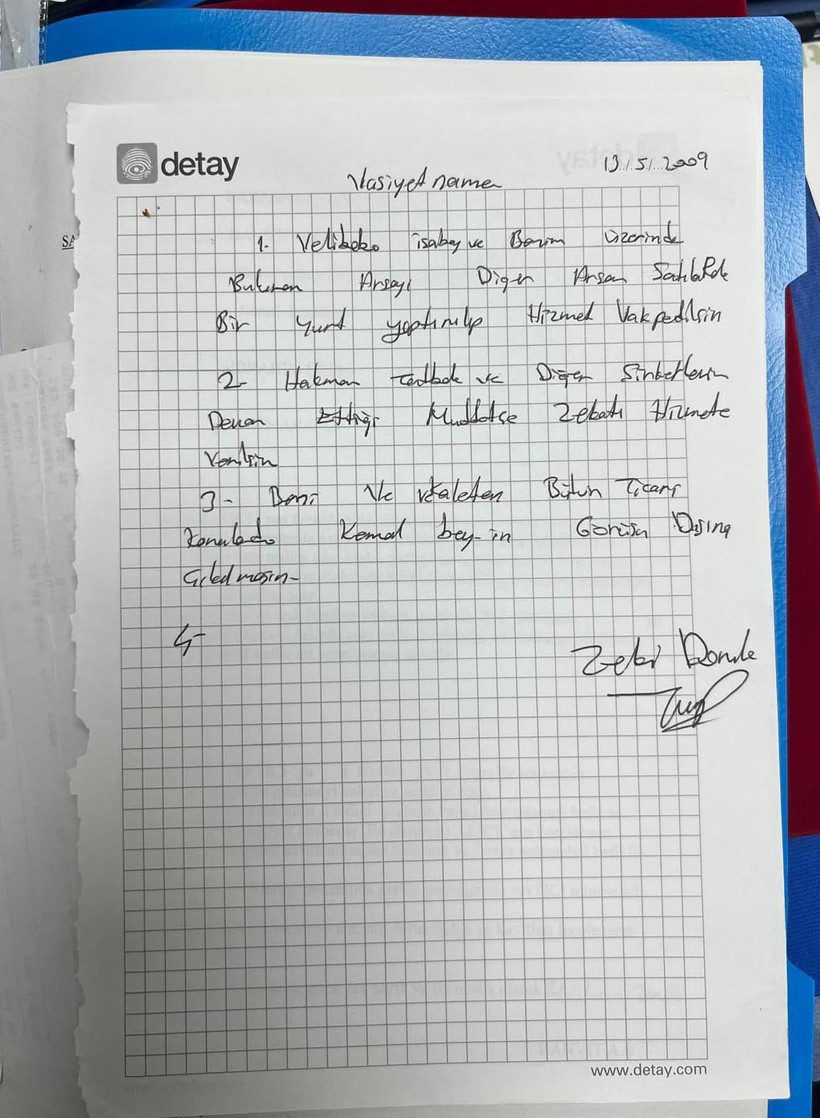 detay
13.5.2009
Vasiyet name
1- isabey ve Benim üzerinde
Bulunan Arsayı Diğer Arsam Satılıp
Bir Yurt yaptırılıp Hizmet Vakpedilsin
2- ve Diğer Şirketlerin
Devam Ettiği Müddetçe Zekatı Hizmete
Verilsin
3- Beni Ve Bütün Ticari
Konularda Kemal bey-in Görüşü Dışına
Çıkılmasın-
4-
Zeki
www.detay.com